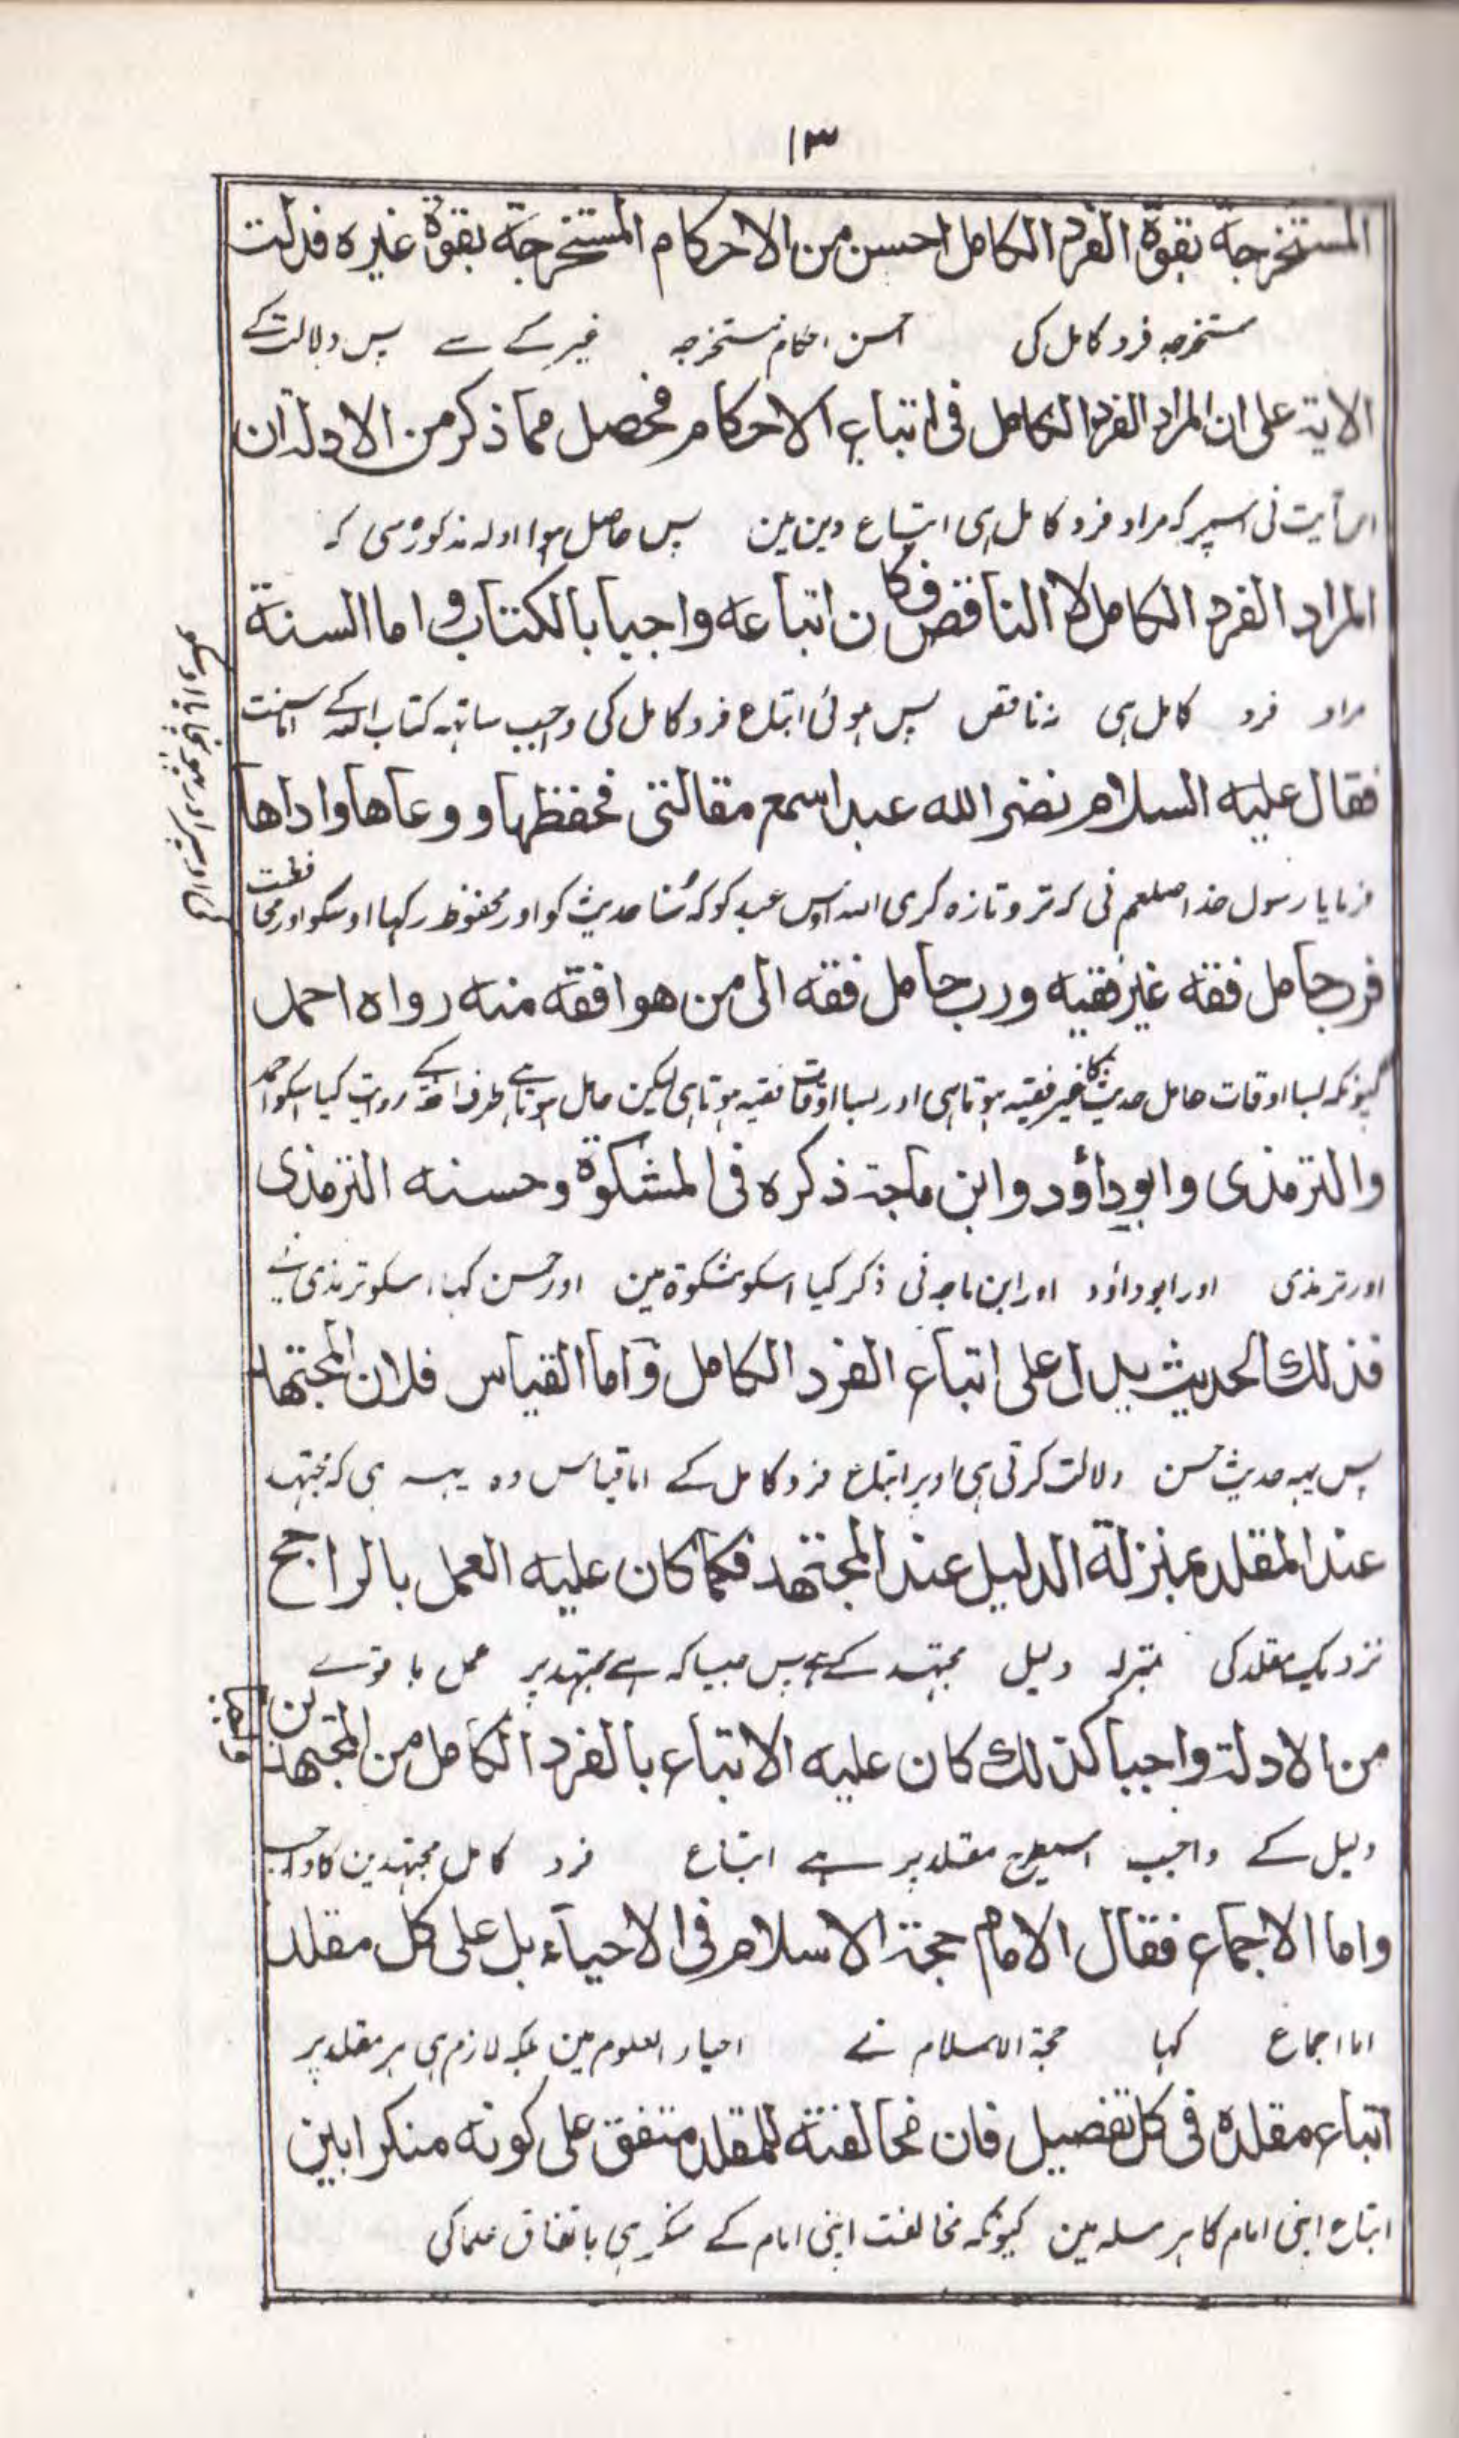 ١٣
المستخرجة بقوة الفرد الكامل احسن من الاحركام المستخرجة بقوة غيره فدلت
مستخرجہ فرد کامل کی احسن احکام مستخرجہ غیر کے سے پس دلالت کے
الاية على ان المراد الفرد الكامل فى اتباع الاحكام فحصل مما ذكر من الادلة ان
اس آیت نی اسپر کہ مراد فرد کامل ہی اتباع دین مین پس حاصل ہوا ادلہ مذکورہ سی کہ
المراد الفرد الكامل لا الناقص فكان اتباعه واجبا بالكتاب و اما السنة
مراد فرد کامل ہی نہ ناقص پس ہوئی اتباع فرد کامل کی واجب ساتہہ کتاب اللہ کے اما سنت
فقال عليه السلام نضر الله عبدا سمع مقالتى فحفظها و وعاها واداها
فرمایا رسول خدا صلعم نی کہ تر و تازہ کری اللہ اوس عبد کو کہ سُنا حدیث کو اور محفوظ رکہا اوسکو اور محافظت
فرب حامل فقه غير فقيه ورب حامل فقه الى من هو افقه منه رواه احمد
کیونکہ بسا اوقات حامل حدیث کا غیر فقیہ ہوتا ہی اور بسا اوقات فقیہ ہوتا ہی لیکن حامل ہوتا ہے طرف افقہ کے روایت کیا اسکو احمد
والترمذى وابوداؤد وابن ماجة ذكره فى المشكوة وحسنه الترمذى
اور ترمذی اور ابو داؤد اور ابن ماجہ نی ذکر کیا اسکو مشکوۃ مین اور حسن کہا اسکو ترمذی نے
فذلك الحديث يدل على اتباع الفرد الكامل و اما القياس فلان المجتهد
پس یہہ حدیث حسن دلالت کرتی ہی اوپر اتباع فرد کامل کے اما قیاس وہ یہہ ہی کہ مجتہد
عند المقلد بمنزلة الدليل عند المجتهد فكما كان عليه العمل بالراجح
نزدیک مقلد کی بمنزلہ دلیل مجتہد کے ہے پس جیسا کہ ہے مجتہد پر عمل با قوے
من الادلة واجبا كذلك كان عليه الاتباع بالفرد الكامل من المجتهدين
دلیل کے واجب اسیطرح مقلد پر ہے اتباع فرد کامل مجتہدین کا واجب
واما الاجماع فقال الامام حجة الاسلام فى الاحياء بل على كل مقلد
اما اجماع کہا حجۃ الاسلام نے احیاء العلوم مین بلکہ لازم ہی ہر مقلد پر
اتباع مقلده فى كل تفصيل فان مخالفته للمقلد متفق على كونه منكرا بين
اتباع اپنی امام کا ہر مسلہ مین کیونکہ مخالفت اپنی امام کے منکر ہی باتفاق علما کی